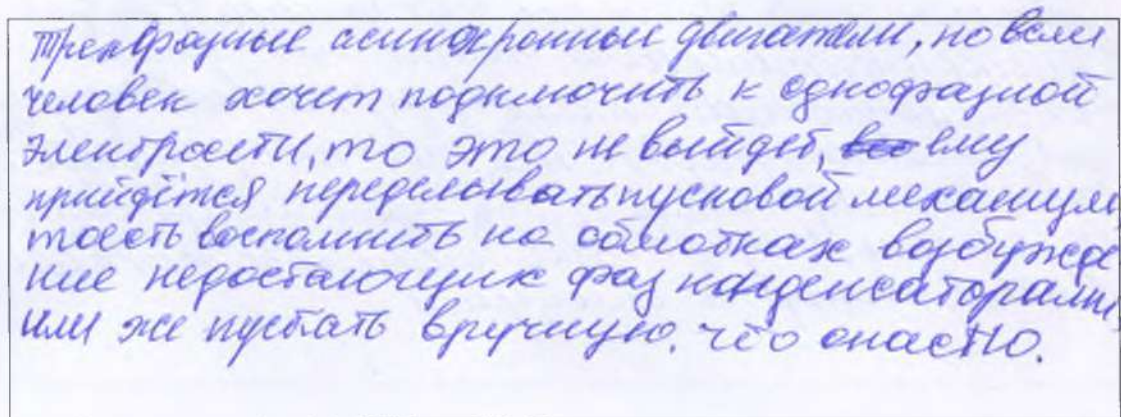 трехфазные асинхронные двигатели, но если
человек хочет подключить к однофазной
электросети, то это не выйдет, ему
прийдётся переделывать пусковой механизм
тоесть восполнить на обмотках возбужде
ние недостающик фаз конденсаторами,
или же пускать вручную. что опастно.